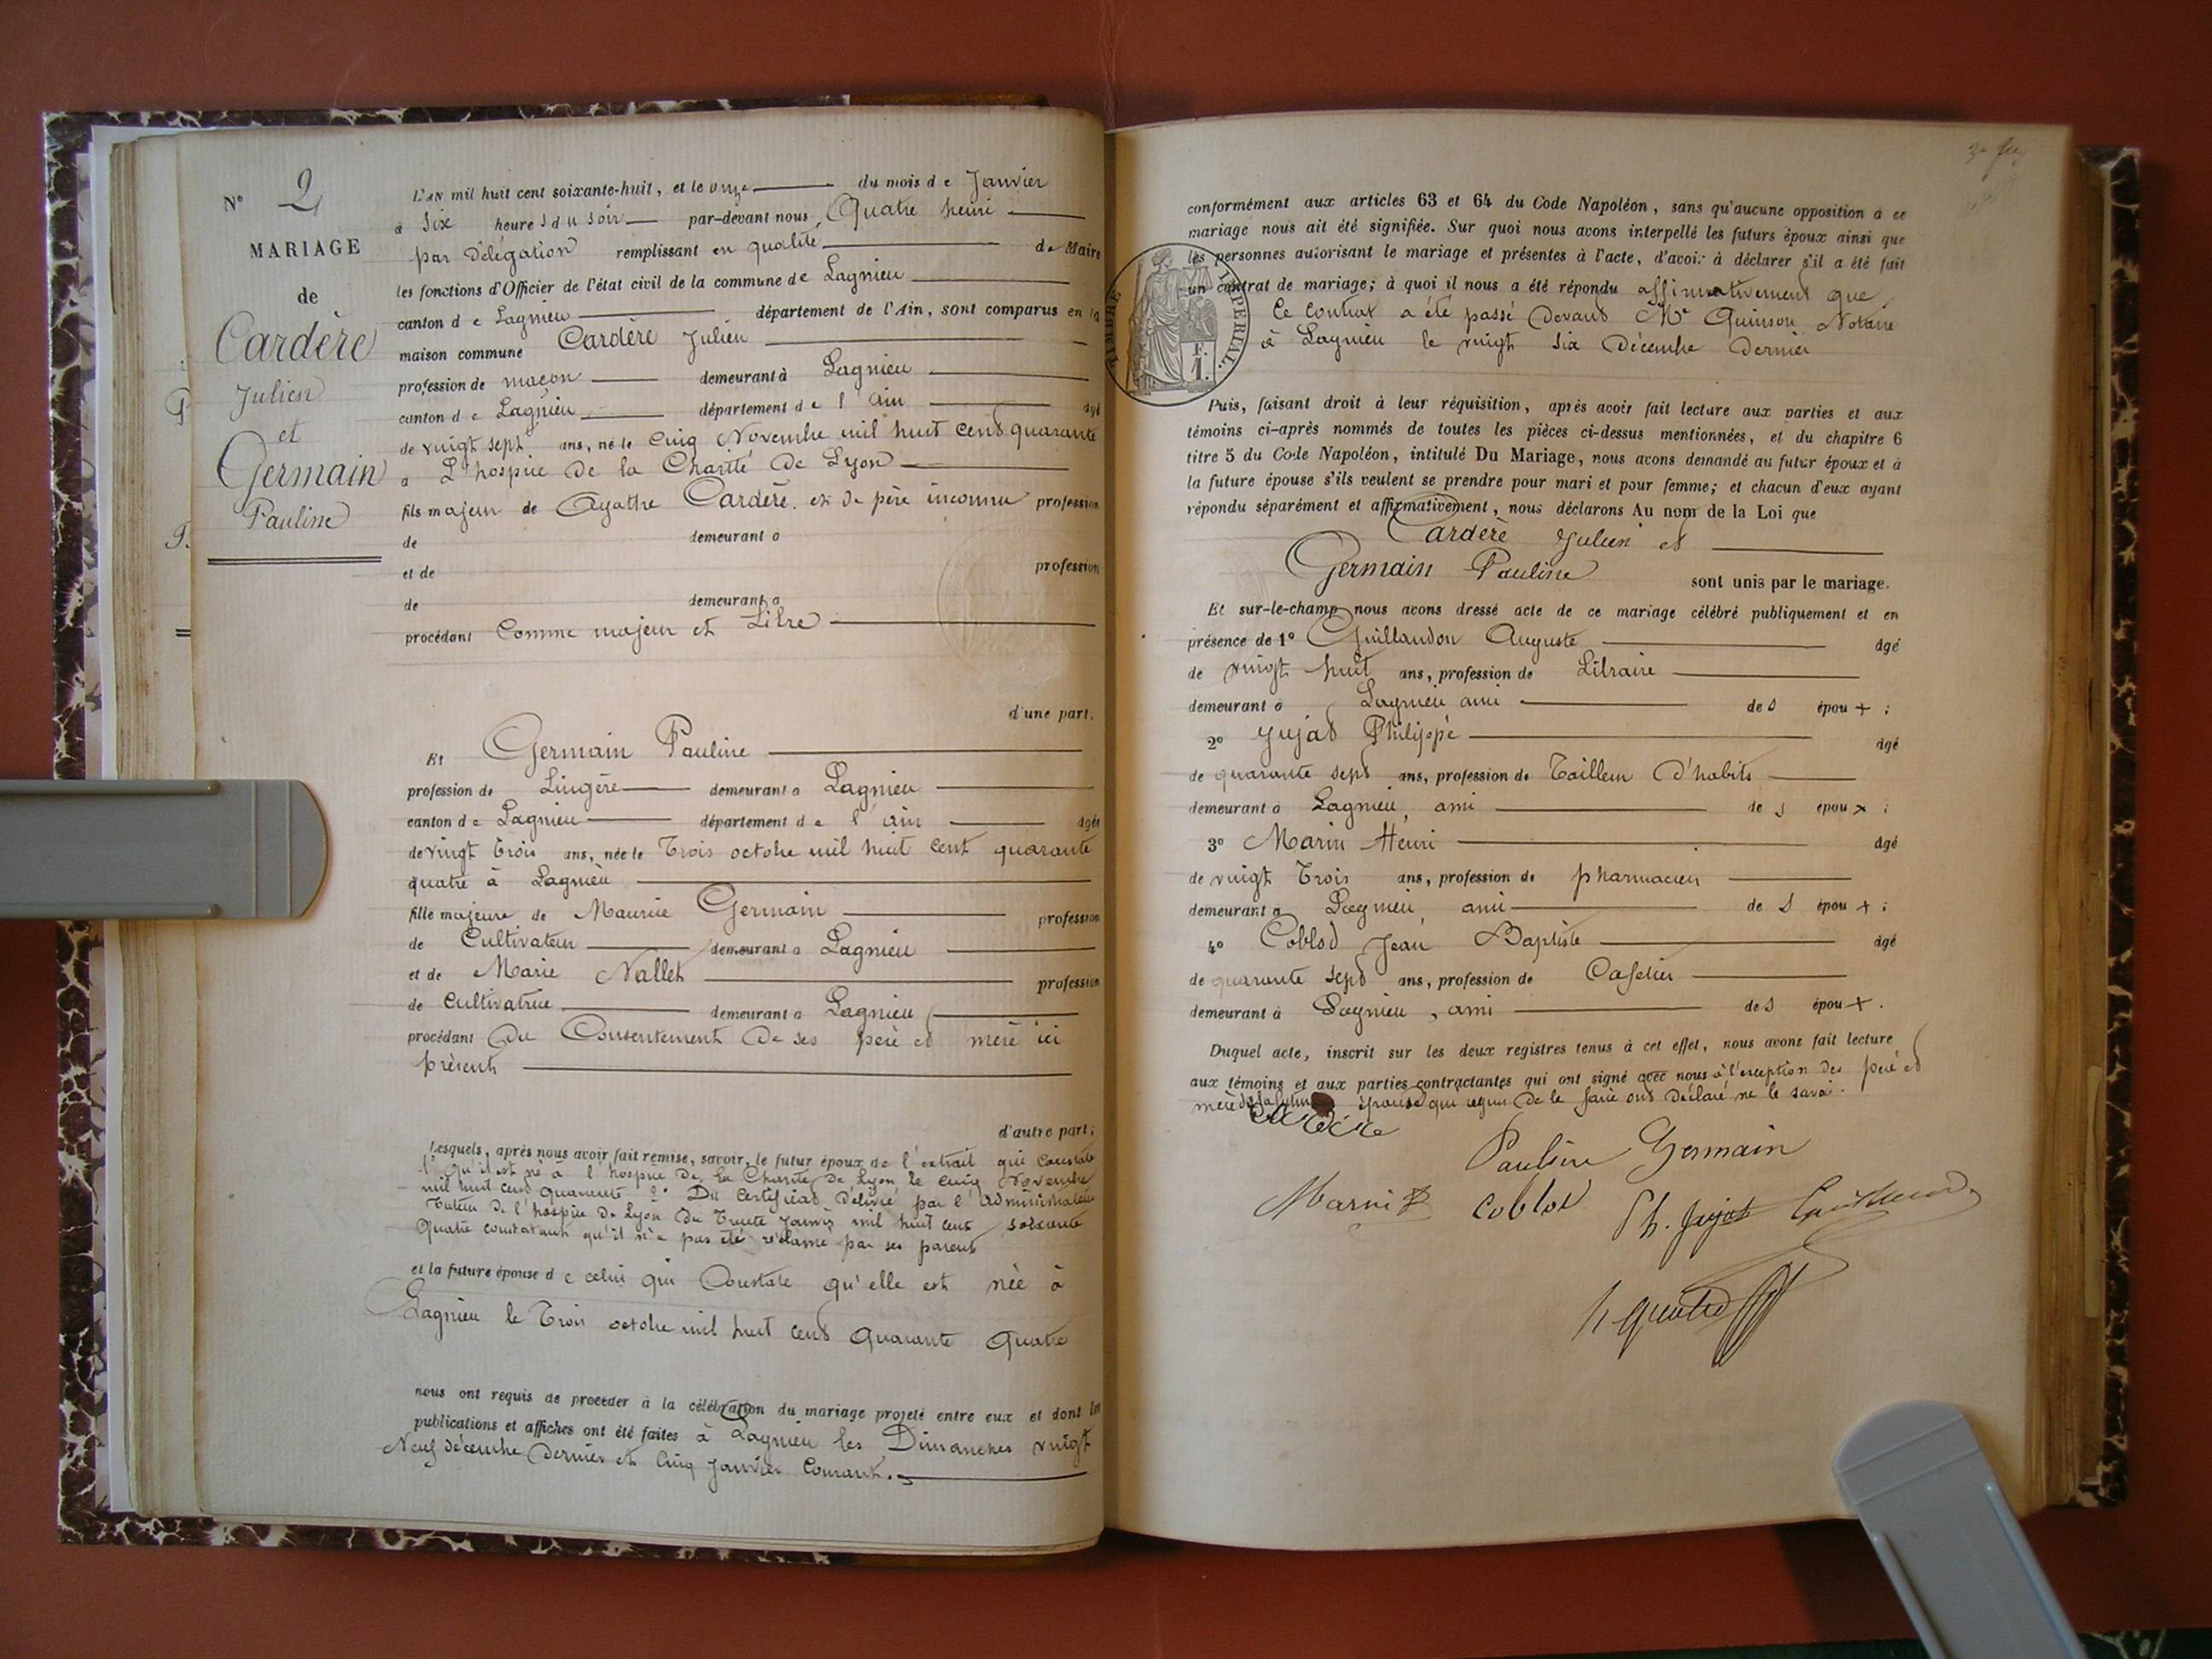 N° 2
MARIAGE
de
Cardère
Julien
et
Germain
Pauline
L'AN mil huit cent soixante-huit, et le onze du mois de Janvier
à Six heures du soir par-devant nous, Quatre henri
par Délégation remplissant en qualité de Maire
les fonctions d'Officier de l'état civil de la commune de Lagnieu
canton de Lagnieu département de l'Ain, sont comparus en la
maison commune Cardère Julien
profession de maçon demeurant à Lagnieu
canton de Lagnieu département de l'ain âgé
de vingt sept ans, né le Cinq Novembre mil huit cent quarante
à L'hospice de la Charité de Lyon
fils majeur de Agathe Cardère et de père inconnu profession
de demeurant à
et de profession
de demeurant à
procédant Comme majeur et Libre
d'une part.
Et Germain Pauline
profession de Lingère demeurant à Lagnieu
canton de Lagnieu département de l'ain âgée
de vingt trois ans, née le Trois octobre mil huit cent quarante
quatre à Lagnieu
fille majeure de Maurice Germain profession
de Cultivateur demeurant à Lagnieu
et de Marie Nallet profession
de Cultivatrice demeurant à Lagnieu
procédant Du Consentement De ses père et mère ici
présents
d'autre part;
Lesquels, après nous avoir fait remise, savoir, le futur époux de l'extrait qui Constate
1° qu'il est né à l'hospice De La Charité De Lyon le cinq Novembre
mil huit cent quarante 2° Du Certificat Délivré par l'administrateur
Tuteur De l'hospice De Lyon Du Trente Janvier mil huit cent soixante
Quatre constatant qu'il n'a pas été réclamé par ses parents
et la future épouse de celui qui Constate qu'elle est née à
Lagnieu le Trois octobre mil huit cent Quarante Quatre
nous ont requis de procéder à la célébration du mariage projeté entre eux et dont les
publications et affiches ont été faites à Lagnieu les Dimanches vingt
Neuf décembre Dernier et Cinq Janvier Courant.
conformément aux articles 63 et 64 du Code Napoléon, sans qu'aucune opposition à ce
mariage nous ait été signifiée. Sur quoi nous avons interpellé les futurs époux ainsi que
les personnes autorisant le mariage et présentes à l'acte, d'avoir à déclarer s'il a été fait
un contrat de mariage; à quoi il nous a été répondu affirmativement que
Ce Contrat a été passé Devant Me Quinson Notaire
à Lagnieu le vingt six Décembre Dernier
TIMBRE IMPERIAL.
F.
1.
Puis, faisant droit à leur réquisition, après avoir fait lecture aux parties et aux
témoins ci-après nommés de toutes les pièces ci-dessus mentionnées, et du chapitre 6
titre 5 du Code Napoléon, intitulé Du Mariage, nous avons demandé au futur époux et à
la future épouse s'ils veulent se prendre pour mari et pour femme; et chacun d'eux ayant
répondu séparément et affirmativement, nous déclarons Au nom de la Loi que
Cardère Julien et
Germain Pauline sont unis par le mariage.
Et sur-le-champ nous avons dressé acte de ce mariage célébré publiquement et en
présence de 1° Guillaudon Auguste âgé
de vingt huit ans, profession de Libraire
demeurant à Lagnieu ami des époux;
2° Jujat Philippe âgé
de quarante sept ans, profession de Tailleur D'habits
demeurant à Lagnieu, ami des époux;
3° Marin Henri âgé
de vingt Trois ans, profession de pharmacien
demeurant à Lagnieu, ami des époux;
4° Coblod Jean Baptiste âgé
de quarante sept ans, profession de Cafetier
demeurant à Lagnieu, ami des époux.
Duquel acte, inscrit sur les deux registres tenus à cet effet, nous avons fait lecture
aux témoins et aux parties contractantes qui ont signé avec nous à l'exception des père et
mère de la future épouse qui requis De le faire ont Déclaré ne le savoir.
Cardère
Pauline Germain
Coblot Ph. Jujat
h quatre